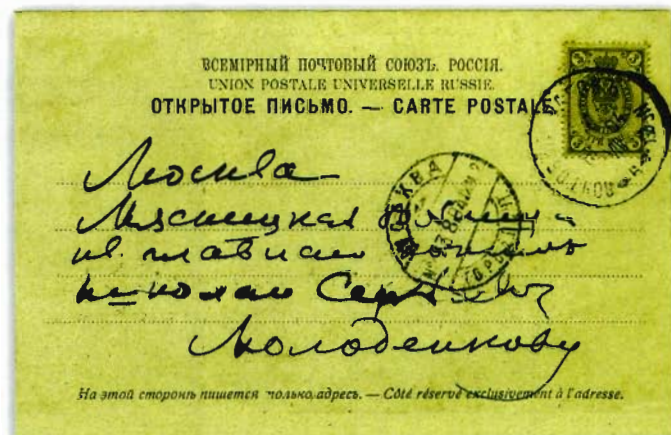 ВСЕМІРНЫЙ ПОЧТОВЫЙ СОЮЗЪ. РОССІЯ.
UNION POSTALE UNIVERSELLE RUSSIE.
ОТКРЫТОЕ ПИСЬМО. — CARTE POSTALE
3 3
Москва
МОСКВА
Мясницкая больница
кв. главнаго
Николаю Сергѣевичу
Молоденкову
На этой сторонѣ пишется только адресъ. — Côté réservé exclusivement à l'adresse.